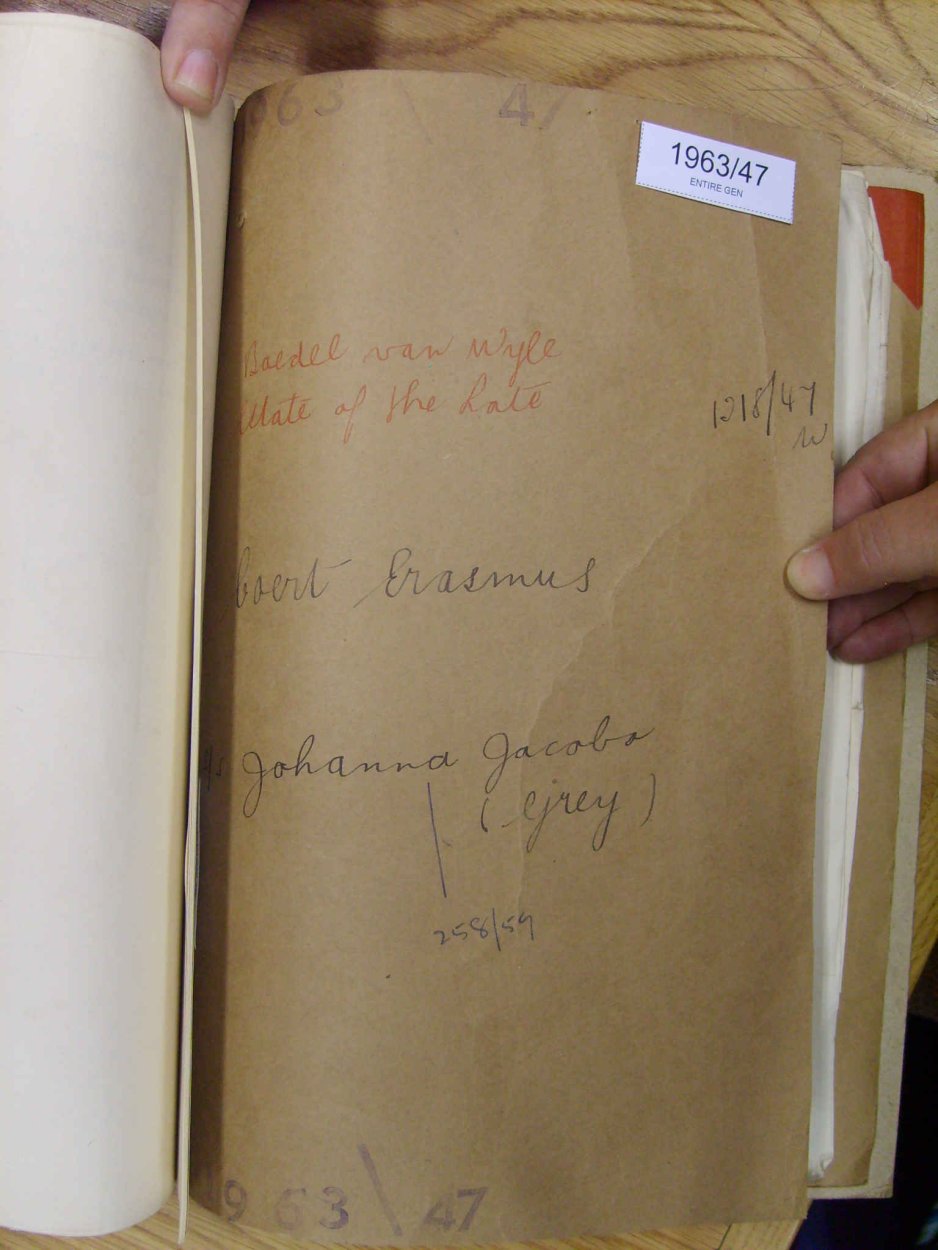 963 \ 47
1963/47
ENTIRE GEN
Boedel van Wyle
Estate of the Late
1218/47
W
Coert Erasmus
Johanna Jacoba
(Grey)
258/59
1963 \ 47